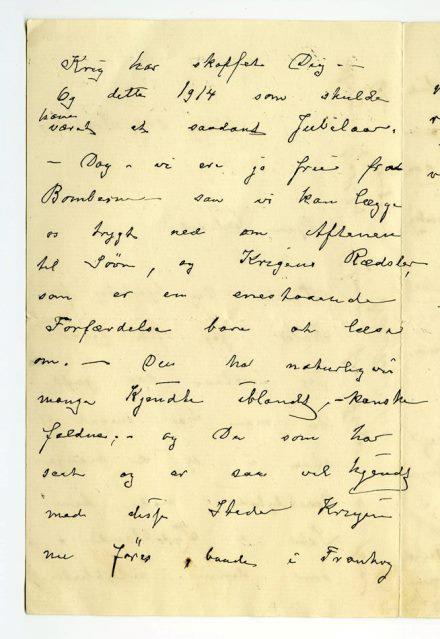 Krig har skaffet Dig. —
Og dette 1914 som skulde
have
været et saadant Jubelaar.
— Dog - vi ere jo frie fra
Bomberne saa vi kan lægge
os trygt ned om Aftenen
til Søvn, og Krigens Rædsler,
som er en enestaaende
Forfærdelse bare at læse
om. — Du har naturligviis
mange Kjendte iblandt, - kanske
faldne; - og Du som har
seet og er saa vel kjendt
med disse Steder Krigen
nu föres, baade i Frankrig